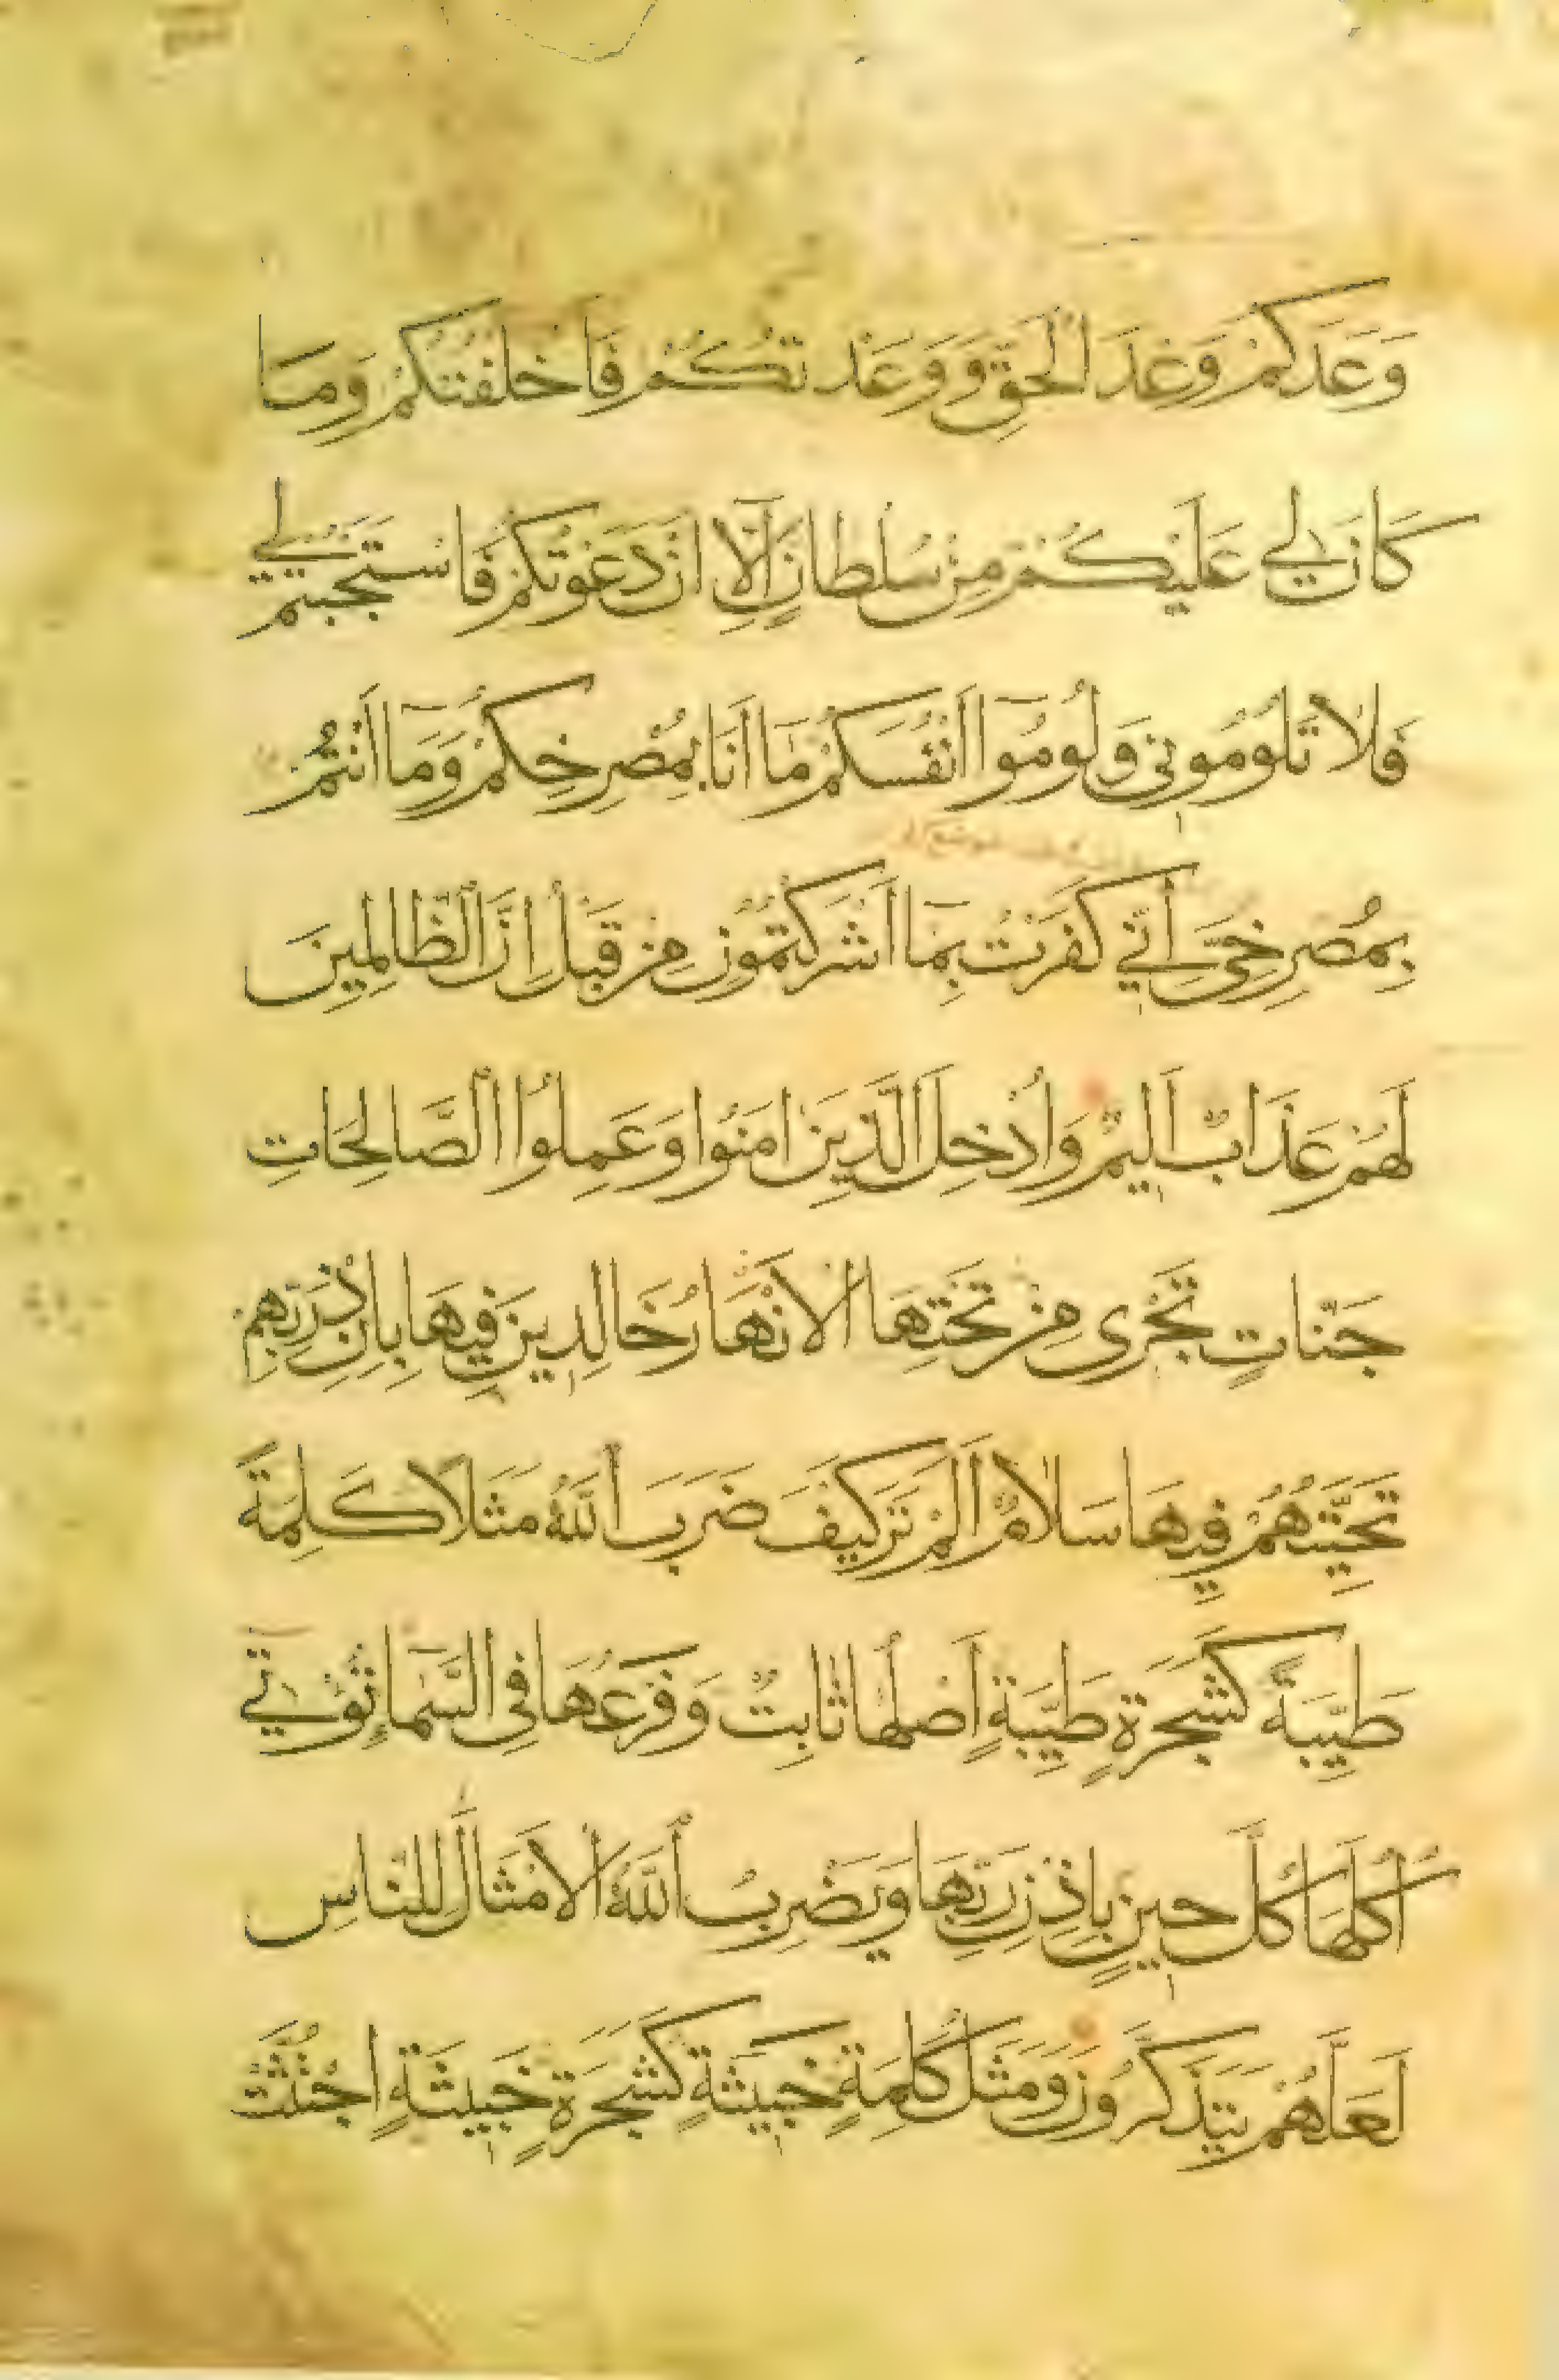 وَعَدَكُمْ وَعْدَ الْحَقِّ وَوَعَدْتُكُمْ فَأَخْلَفْتُكُمْ وَمَا
كَانَ لِي عَلَيْكُمْ مِنْ سُلْطَانٍ إِلَّا أَنْ دَعَوْتُكُمْ فَاسْتَجَبْتُمْ لِي
فَلَا تَلُومُونِي وَلُومُوا أَنْفُسَكُمْ مَا أَنَا بِمُصْرِخِكُمْ وَمَا أَنْتُمْ
بِمُصْرِخِيَّ إِنِّي كَفَرْتُ بِمَا أَشْرَكْتُمُونِ مِنْ قَبْلُ إِنَّ الظَّالِمِينَ
لَهُمْ عَذَابٌ أَلِيمٌ وَأُدْخِلَ الَّذِينَ امَنُوا وَعَمِلُوا الصَّالِحَاتِ
جَنَّاتٍ تَجْرِي مِنْ تَحْتِهَا الْأَنْهَارُ خَالِدِينَ فِيهَا بِإِذْنِ رَبِّهِمْ
تَحِيَّتُهُمْ فِيهَا سَلَامٌ أَلَمْ تَرَ كَيْفَ ضَرَبَ اللَّهُ مَثَلًا كَلِمَةً
طَيِّبَةً كَشَجَرَةٍ طَيِّبَةٍ أَصْلُهَا ثَابِتٌ وَفَرْعُهَا فِي السَّمَاءِ تُؤْتِي
أُكُلَهَا كُلَّ حِينٍ بِإِذْنِ رَبِّهَا وَيَضْرِبُ اللَّهُ الْأَمْثَالَ لِلنَّاسِ
لَعَلَّهُمْ يَتَذَكَّرُونَ وَمَثَلُ كَلِمَةٍ خَبِيثَةٍ كَشَجَرَةٍ خَبِيثَةٍ اجْتُثَّتْ